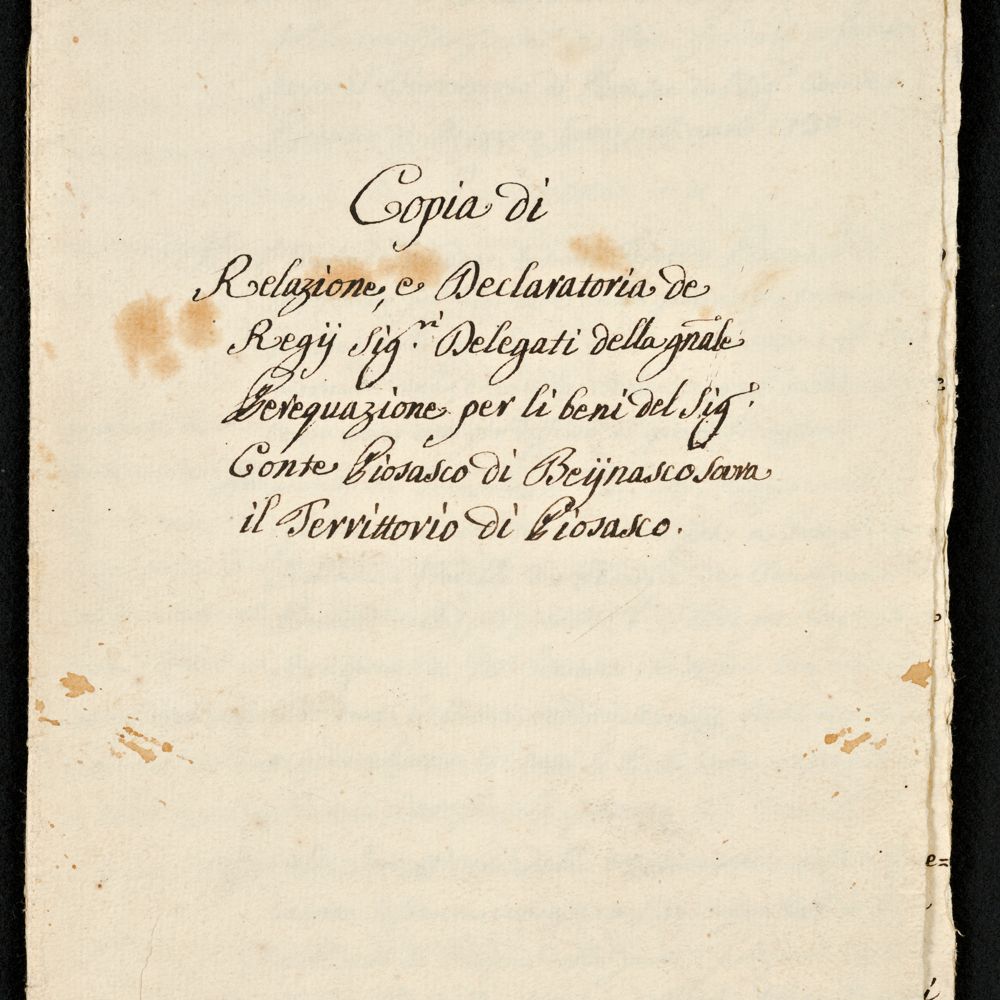 Copia di
Relazione, e Declaratoria de
Regij Sig.ri Delegati della gnãle
Perequazione per li beni del Sig.r
Conte Piosasco di Beijnasco sovra
il Territtorio di Piosasco.
e=
i